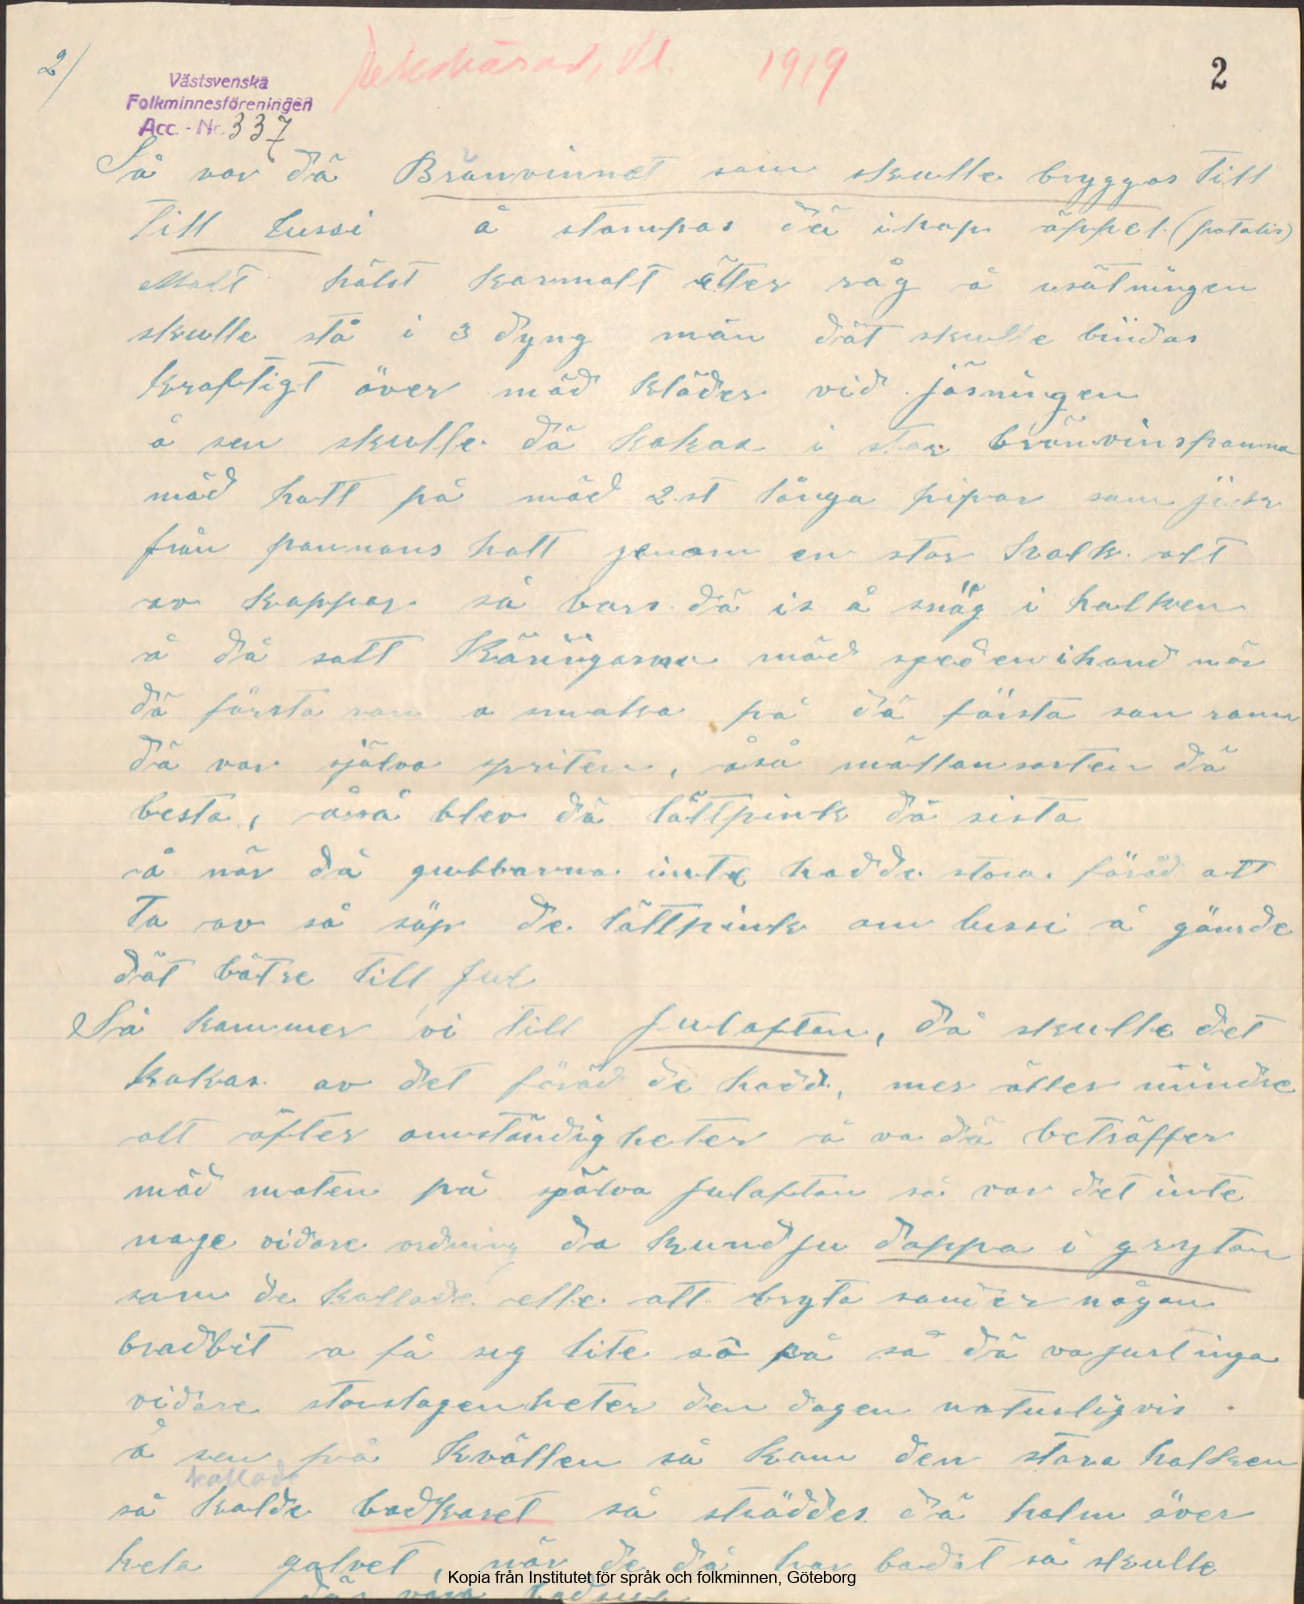 2/
Västsvenska
Folkminnesföreningen
Acc. - Nr. 337
1919
2
Så var dä Bränvinnet som skulle bryggas till
till Lussi å stampas dä ihop äppel (potatis)
Malt hälst kornmalt ätter råg å
skulle stå i 3 dyng män dät skulle bindas
kraftigt över mäd kläder vid jäsningen
å sen skulle dä kokas i stor bränvinspanna
mäd hatt på mäd 2 st långa pipor som
från pannans hatt jenom en stor halk alt
av kappar så bars dä is å snög i halken
å då satt Käringarna mäd speden i hand när
dä första rann o smaka på dä första som rann
dä var själva spriten, åså mällansorten dä
besta, åså blev dä lättpink dä sista
å när då gubbarna inte hadde stora föråd att
ta av så söp de lättpink om lussi å gömde
dät bätre till Jul
Så kommer vi till Julafton, då skulle det
kokas av det föråd de hadd, mer äller mindre
alt äfter omständigheter å va dä beträffer
mäd maten på själva Julaftan så var det inte
noge vidare ordning da kund ju doppa i grytan
som de kallade elle att bryta sönder någon
bradbit o få seg lite så på så dä va just inga
vidare storslagenheter den dagen naturligvis.
å sen på kvällen så kom den stora halken
kallade
så kalde badkaret så ströddes dä halm över
hela golvet, när de då har badat så skulle
där vara
Kopia från Institutet för språk och folkminnen, Göteborg